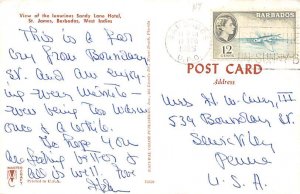 View of the luxurious Sandy Lane Hotel,
St. James, Barbados, West Indies
This is a far
cry from Boundary
St. and am enjoy-
ing every minute -
even being too warm
once of a while.
Do hope you
are feeling better &
all is well. Love
BARBADOS
12
POST CARD
Address
Mrs H. W. Curry III
539 Boundary St.
Sewickley
Penna
U.S.A.